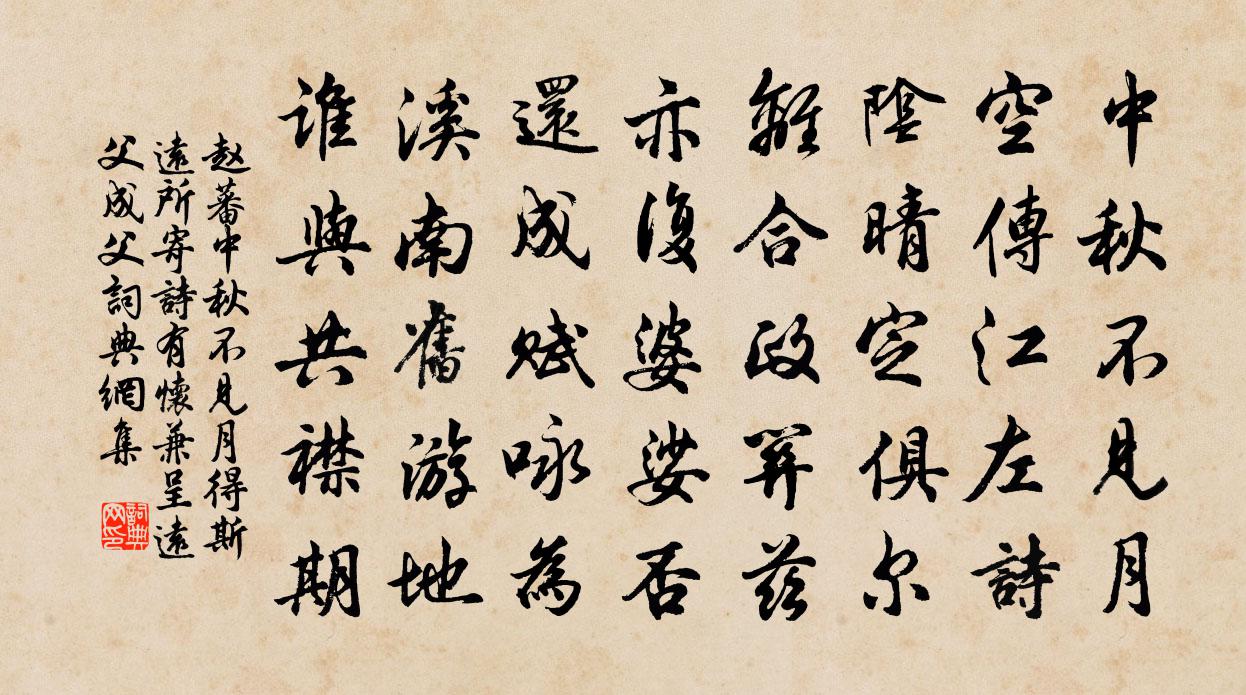 中秋不見月
空傳江左詩
陰晴定俱尔
離合政算茲
亦復婆娑否
還成賦咏為
溪南舊游地
誰與共襟期
赵蕃中秋不見月得斯
遠所寄詩有懷兼呈遠
父成父詞典網集
詞典网印